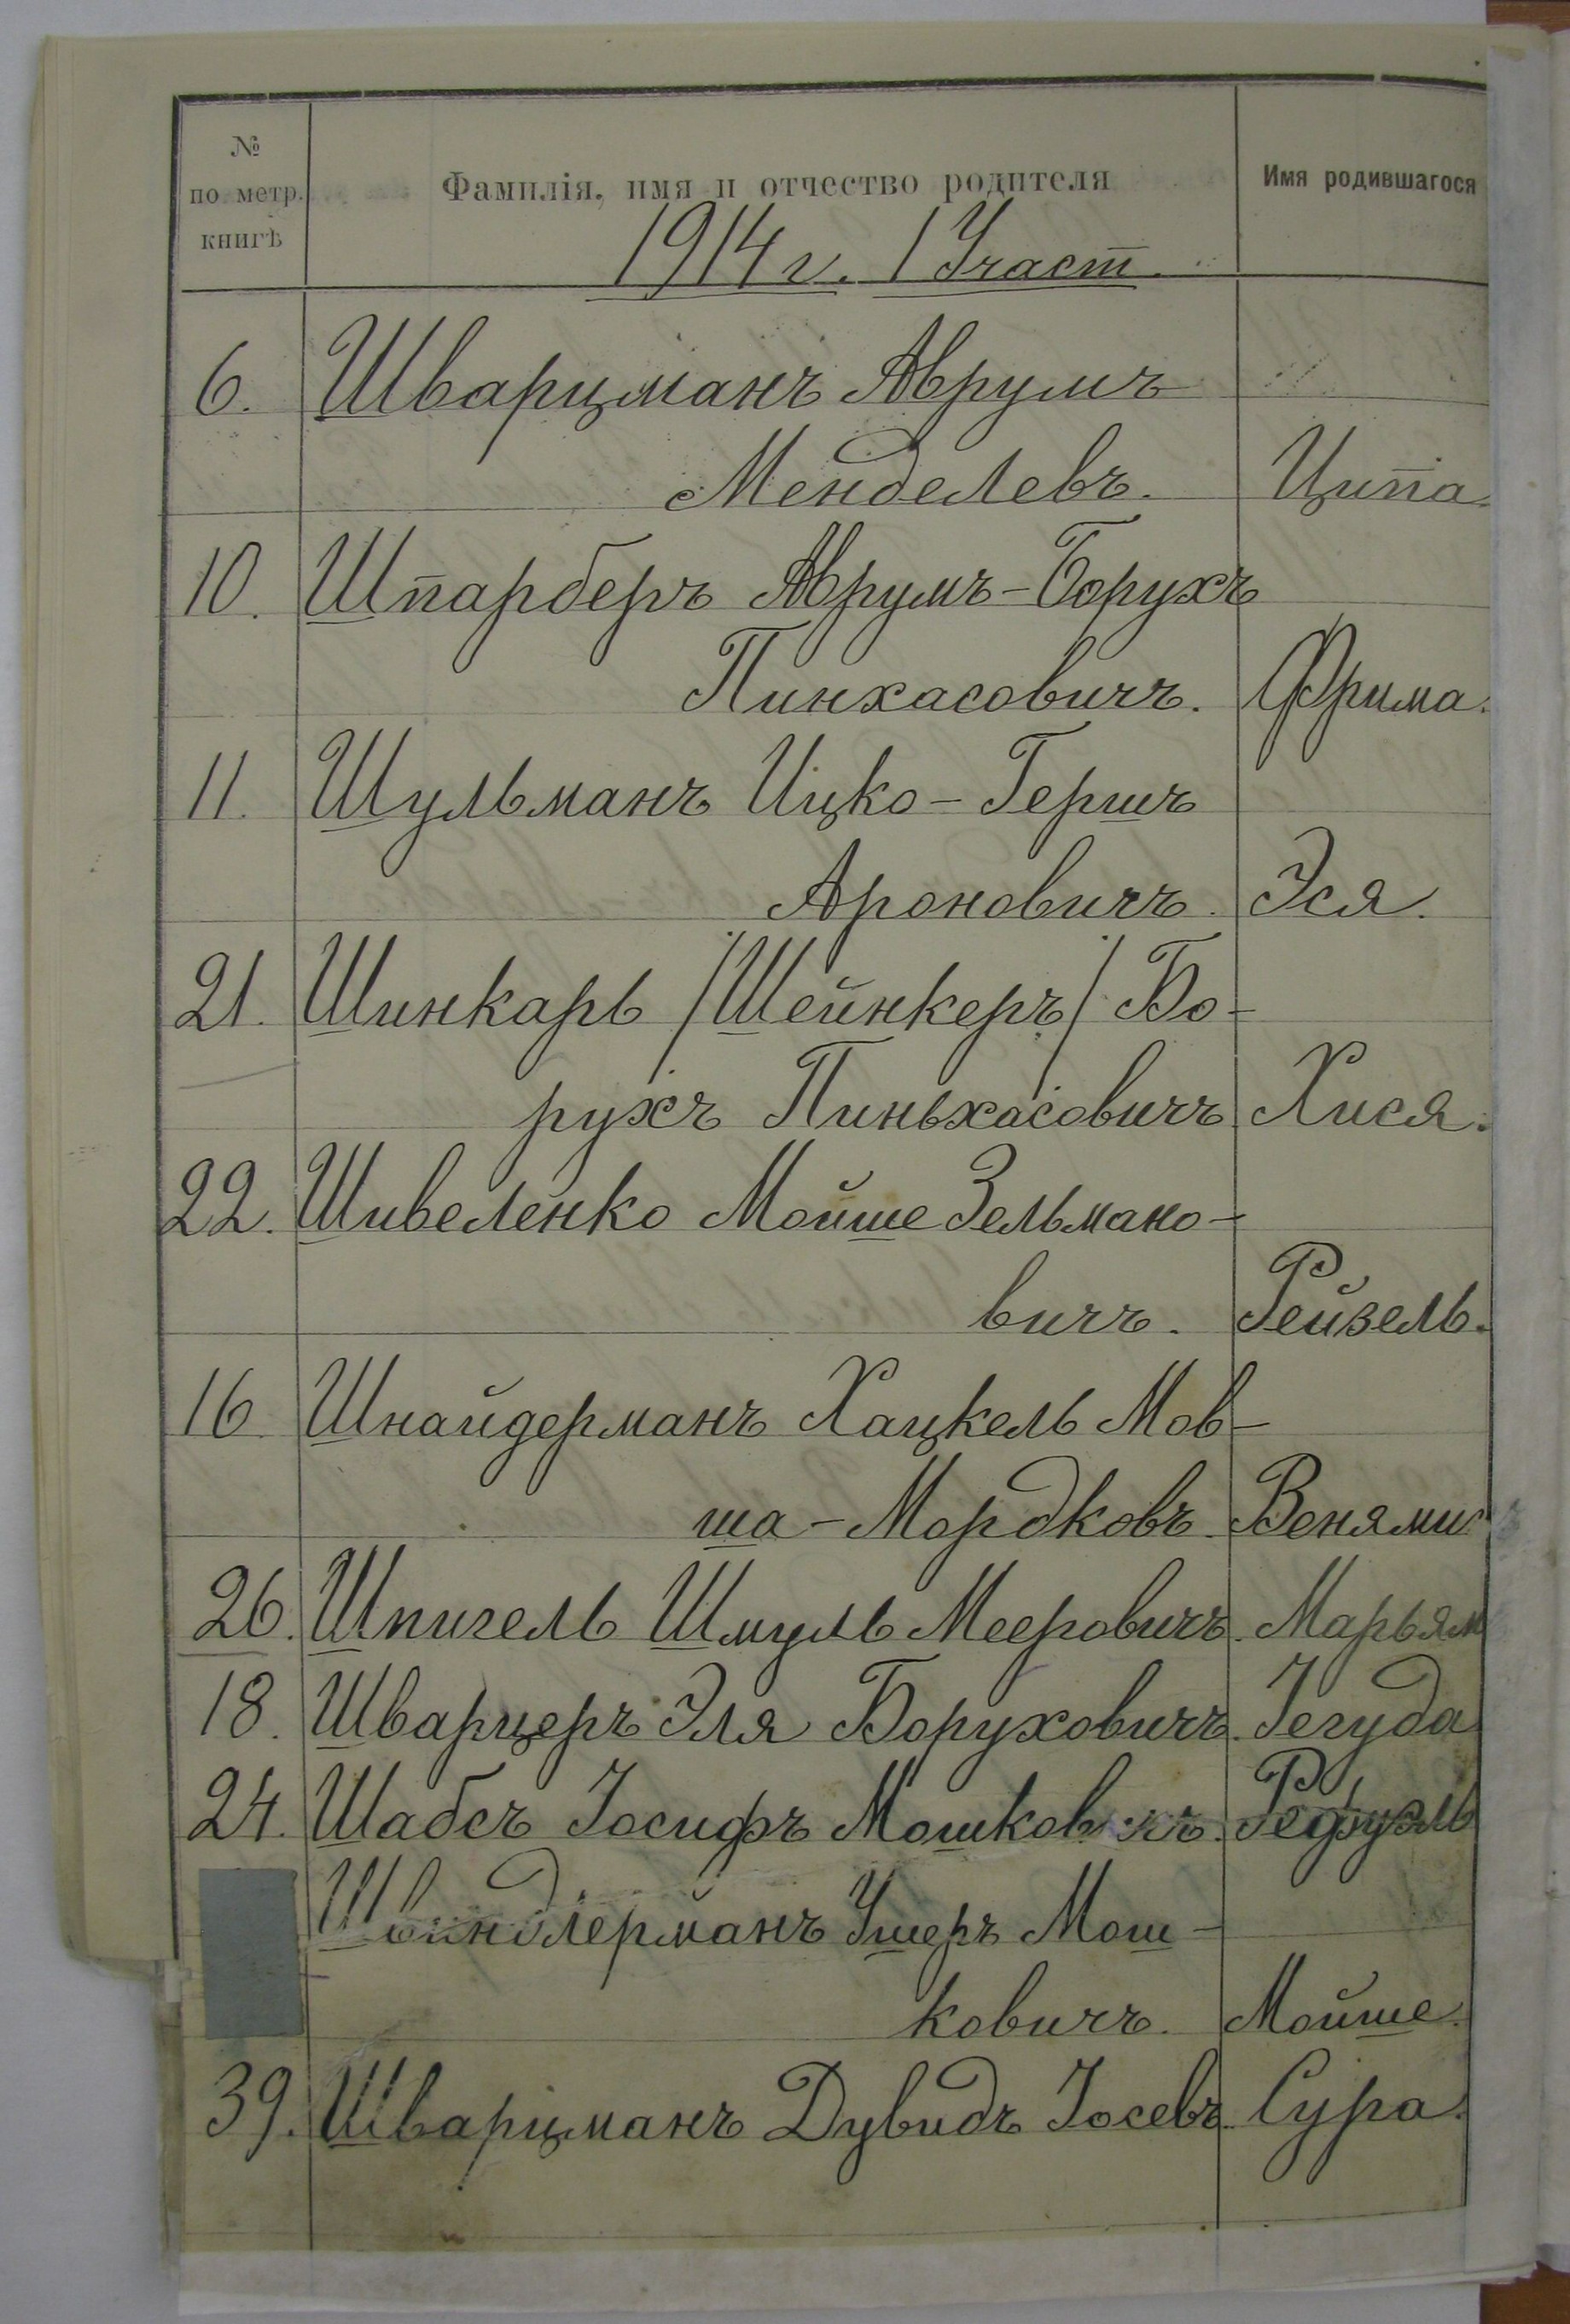 №
по метр.
книгѣ
Фамилія, имя и отчество родителя
Имя родившагося
1914 г. / Участ.
6. Шварцманъ Аврумъ
Менделевъ. Ципа.
10. Шпарберъ Аврумъ-Борухъ
Пинхасовичъ. Фрима.
11. Шульманъ Ицко-Гершъ
Ароновичъ. Эся.
21. Шинкарь /Шейнкеръ/ Бо-
рухъ Пиньхасовичъ Хися.
22. Шивеленко Мойше Зельмано-
вичъ. Рейзель.
16. Шнайдерманъ Хацкель Мов-
ша-Мордковъ. Венями
26. Шпигель Шмуль Мееровичъ. Марьям
18. Шварцеръ Эля Боруховичъ. Іегуда
24. Шабсъ Іосифъ Мошков чъ. Рефуэль
Швиндлерманъ Ушеръ Мош-
ковичъ. Мойше.
39. Шварцманъ Дувидъ Іосевъ. Сура.